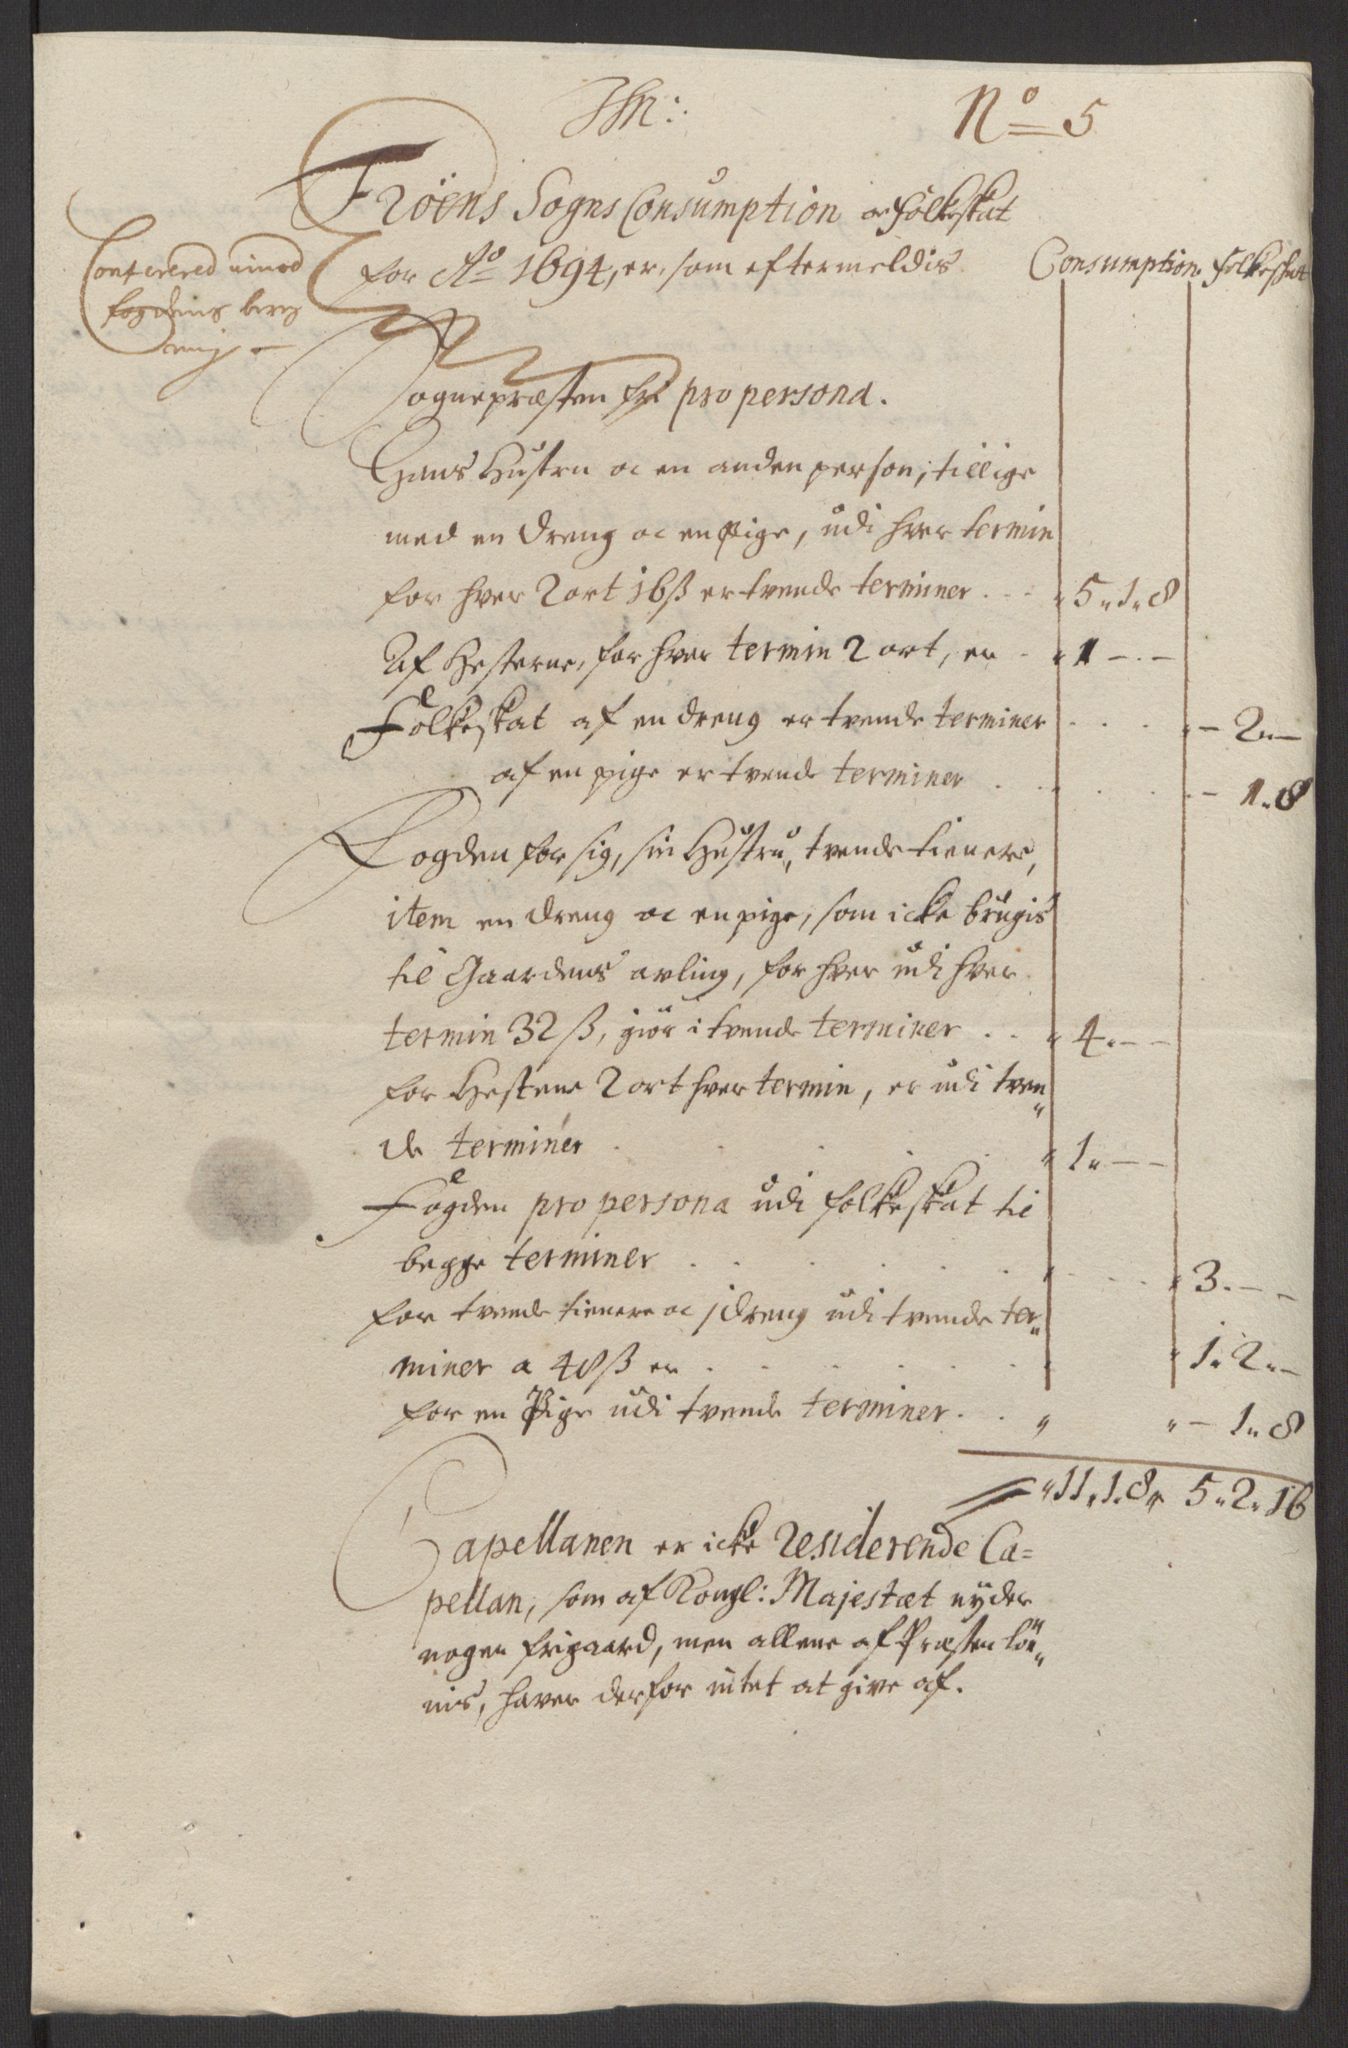 N⁰ 5
Fröens Sogns Consumption oc Folkeskat
for A⁰ 1694, er, som eftermeldis
Consumption. Folkeskat
Conferered imod
fogdens bereg
ning
Sognepræsten fri pro persona.
Hans Hustru oc en anden person, tillige
med en dreng oc en Pige, udi hver termin
for hver 2 ort 16 ß er tvende terminer . . . 5. 1. 8
Af Hesterne, for hver termin 2 ort, er - 1 - . -
Folkeskat af en dreng er tvende terminer . . . - 2. -
af en pige er tvende terminer . . . - 1. 8
Fogden for sig, sin Hustru, tvende tienere,
item en dreng oc en pige, som icke brugis
til Gaardens avling, for hver udi hver
termin 32 ß, giör i tvende terminer . . 4. - -
for Hestene 2 ort hver termin, er udi tven
de terminer . . . 1. - -
Fogden pro persona udi folkeskat til
begge terminer . . . 3. - -
for tvende tienere oc 1 dreng udi tvende ter
miner a 48 ß er . . . 1. 2. -
for en Pige udi tvende terminer . . - 1. 8
11. 1. 8. 5. 2. 16
Capellanen er icke Residerende Ca=
pellan, som af Kongl: Majestæt nyder
nogen frigaard, men allene af Præsten lön
nis, haver derfor intet at give af.